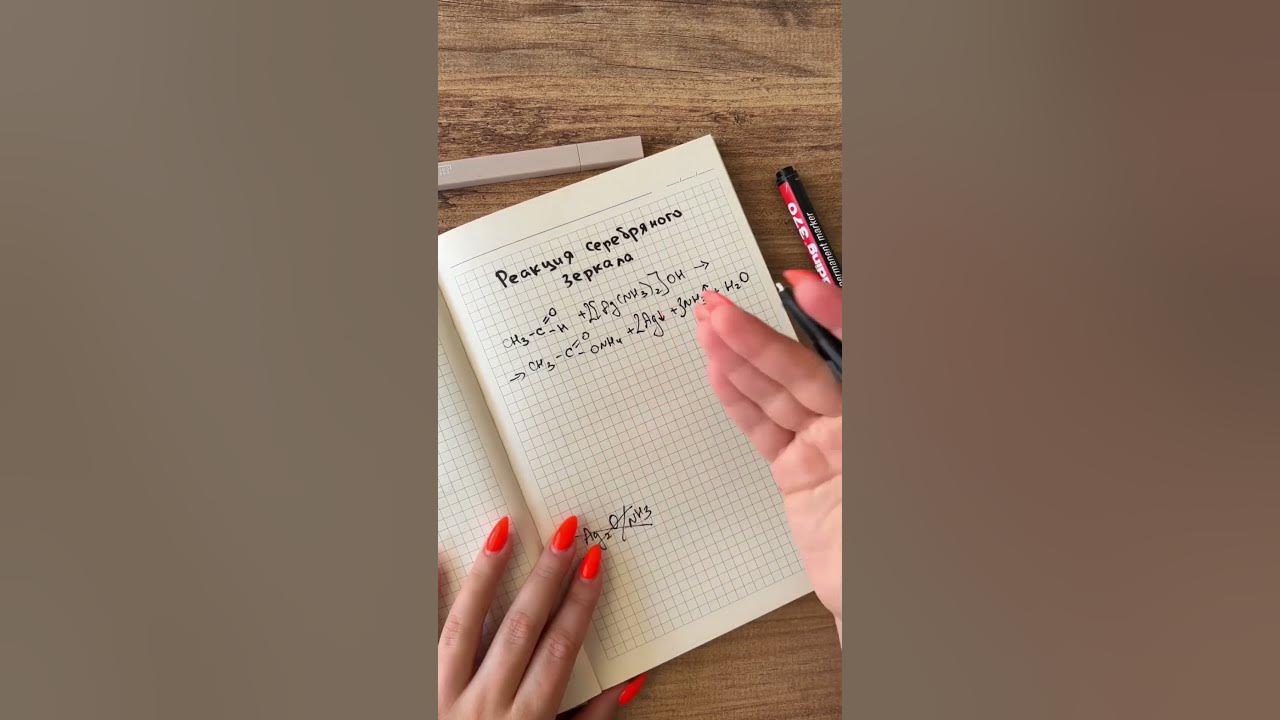 Реакция серебряного
зеркала
O
CH3-C=-H +2[Ag(NH3)2]OH →
O
→ CH3-C=-ONH4 +2Ag↓ +3NH3↑ + H2O
Ag2O/NH3
edding 370
permanent marker